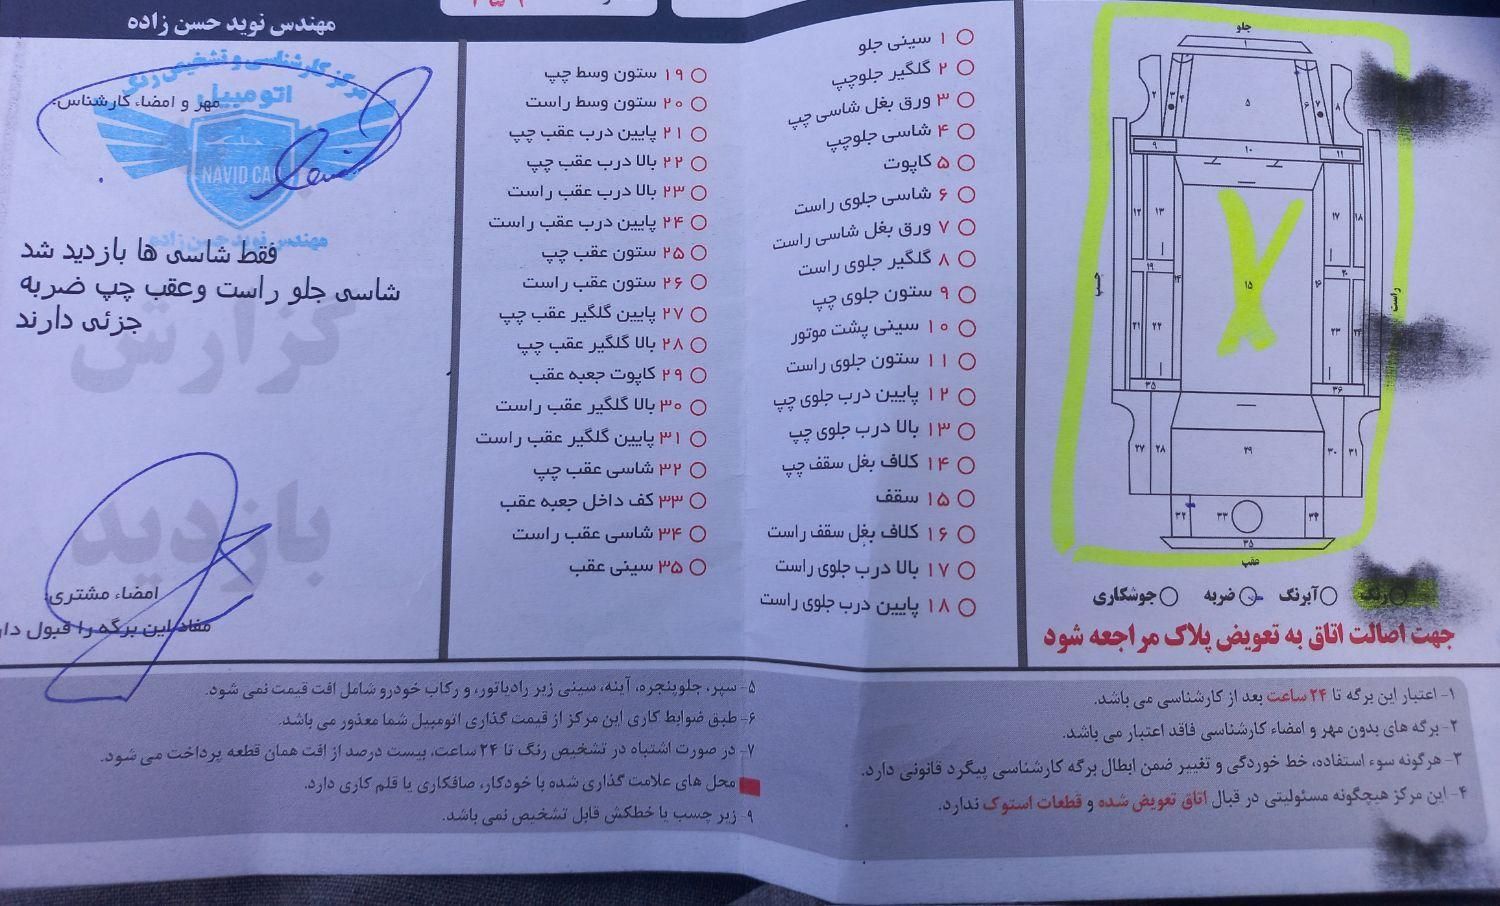 مهندس نوید حسن زاده
مرکز کارشناسی و تشخیص رنگ
اتومبیل
مهر و امضاء کارشناس:
NAVID CAR
مهندس نوید حسن زاده
فقط شاسی ها بازدید شد
شاسی جلو راست وعقب چپ ضربه
جزئی دارند
گزارش
بازدید
امضاء مشتری:
مفاد این برگه را قبول دار
۱ سینی جلو
۲ گلگیر جلوچپ
۳ ورق بغل شاسی چپ
۴ شاسی جلوچپ
۵ کاپوت
۶ شاسی جلوی راست
۷ ورق بغل شاسی راست
۸ گلگیر جلوی راست
۹ ستون جلوی چپ
۱۰ سینی پشت موتور
۱۱ ستون جلوی راست
۱۲ پایین درب جلوی چپ
۱۳ بالا درب جلوی چپ
۱۴ کلاف بغل سقف چپ
۱۵ سقف
۱۶ کلاف بغل سقف راست
۱۷ بالا درب جلوی راست
۱۸ پایین درب جلوی راست
۱۹ ستون وسط چپ
۲۰ ستون وسط راست
۲۱ پایین درب عقب چپ
۲۲ بالا درب عقب چپ
۲۳ بالا درب عقب راست
۲۴ پایین درب عقب راست
۲۵ ستون عقب چپ
۲۶ ستون عقب راست
۲۷ پایین گلگیر عقب چپ
۲۸ بالا گلگیر عقب چپ
۲۹ کاپوت جعبه عقب
۳۰ بالا گلگیر عقب راست
۳۱ پایین گلگیر عقب راست
۳۲ شاسی عقب چپ
۳۳ کف داخل جعبه عقب
۳۴ شاسی عقب راست
۳۵ سینی عقب
جلو
۱
۲ ۳ ۴ ۵ ۶ ۷ ۸
۹ ۱۰ ۱۱
۱۲ ۱۳ ۱۷ ۱۸
چپ ۱۹ ۱۴ ۱۵ ۱۶ ۲۰ راست
۲۱ ۲۲ ۲۳ ۲۴
۲۵ ۲۶
۲۷ ۲۸ ۲۹ ۳۰ ۳۱
۳۲ ۳۳ ۳۴
۳۵
عقب
رنگ آبرنگ ضربه جوشکاری
جهت اصالت اتاق به تعویض پلاک مراجعه شود
۱- اعتبار این برگه تا ۲۴ ساعت بعد از کارشناسی می باشد.
۲- برگه های بدون مهر و امضاء کارشناسی فاقد اعتبار می باشد.
۳- هرگونه سوء استفاده، خط خوردگی و تغییر ضمن ابطال برگه کارشناسی پیگرد قانونی دارد.
۴- این مرکز هیچگونه مسئولیتی در قبال اتاق تعویض شده و قطعات استوک ندارد.
۵- سپر، جلوپنجره، آینه، سینی زیر رادیاتور، و رکاب خودرو شامل افت قیمت نمی شود.
۶- طبق ضوابط کاری این مرکز از قیمت گذاری اتومبیل شما معذور می باشد.
۷- در صورت اشتباه در تشخیص رنگ تا ۲۴ ساعت، بیست درصد از افت همان قطعه پرداخت می شود.
محل های علامت گذاری شده با خودکار، صافکاری یا قلم کاری دارد.
۹- زیر چسب یا خطکش قابل تشخیص نمی باشد.